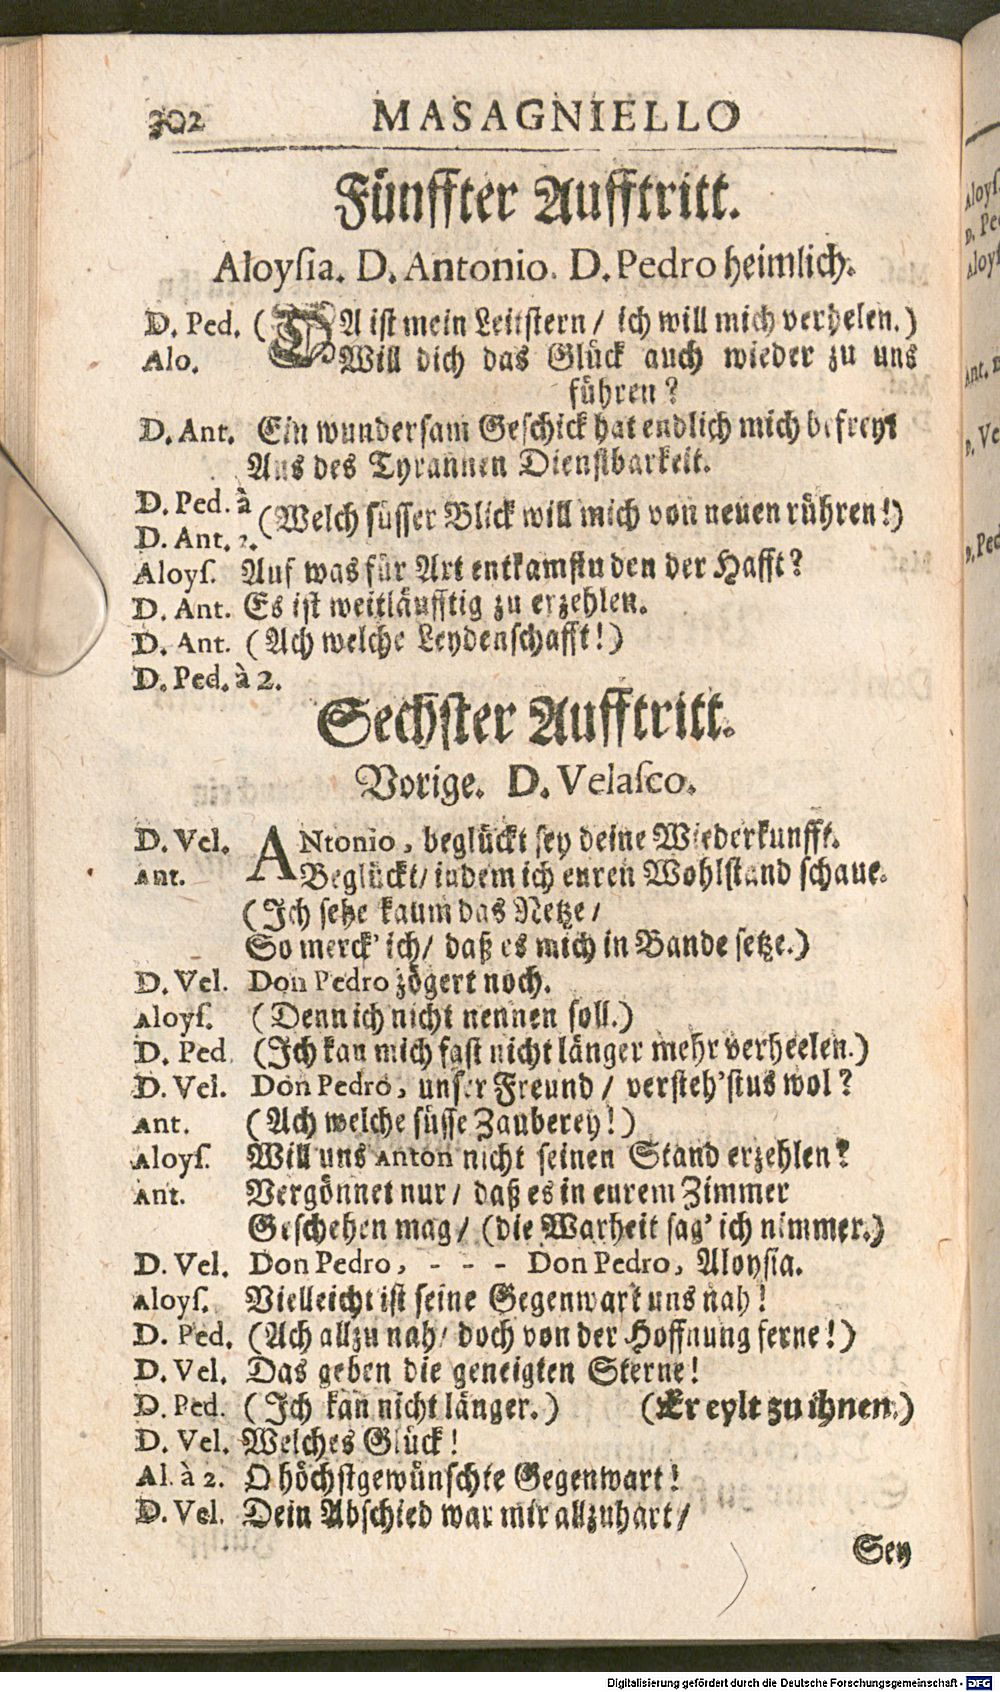 302 MASAGNIELLO
Fünffter Aufftritt.
Aloyſia. D. Antonio. D. Pedro heimlich.
D. Ped. (DA iſt mein Leitſtern / ich will mich verhelen.)
Alo. Will dich das Glück auch wieder zu uns
führen?
D. Ant. Ein wunderſam Geſchick hat endlich mich befreyt
Aus des Tyrannen Dienſtbarkeit.
D. Ped. à
D. Ant. 2. (Welch ſüſſer Blick will mich von neuen rühren!)
Aloyſ. Auf was für Art entkamſtu den der Hafft?
D. Ant. Es iſt weitläufftig zu erzehlen.
D. Ant. (Ach welche Leydenſchafft!)
D. Ped. à 2.
Sechſter Aufftritt.
Vorige. D. Velaſco.
D. Vel. ANtonio, beglückt ſey deine Wiederkunfft.
Ant. Beglückt / indem ich euren Wohlſtand ſchaue.
(Ich ſetze kaum das Netze /
So merck' ich / daß es mich in Bande ſetze.)
D. Vel. Don Pedro zögert noch.
Aloyſ. (Denn ich nicht nennen ſoll.)
D. Ped. (Ich kan mich faſt nicht länger mehr verheelen.)
D. Vel. Don Pedro, unſer Freund / verſteh'ſtus wol?
Ant. (Ach welche ſüſſe Zauberey!)
Aloyſ. Will uns Anton nicht ſeinen Stand erzehlen?
Ant. Vergönnet nur / daß es in eurem Zimmer
Geſchehen mag / (die Warheit ſag' ich nimmer.)
D. Vel. Don Pedro, - - - Don Pedro, Aloyſia.
Aloyſ. Vielleicht iſt ſeine Gegenwart uns nah!
D. Ped. (Ach allzu nah / doch von der Hoffnung ferne!)
D. Vel. Das geben die geneigten Sterne!
D. Ped. (Ich kan nicht länger.) (Er eylt zu ihnen.)
D. Vel. Welches Glück!
Al. à 2. O höchſtgewünſchte Gegenwart!
D. Vel. Dein Abſchied war mir allzuhart /
Sey
Aloyſ.
D. Pe
Aloyſ
Ant.
D. Ve
D. Ped
Digitalisierung gefördert durch die Deutsche Forschungsgemeinschaft - DFG